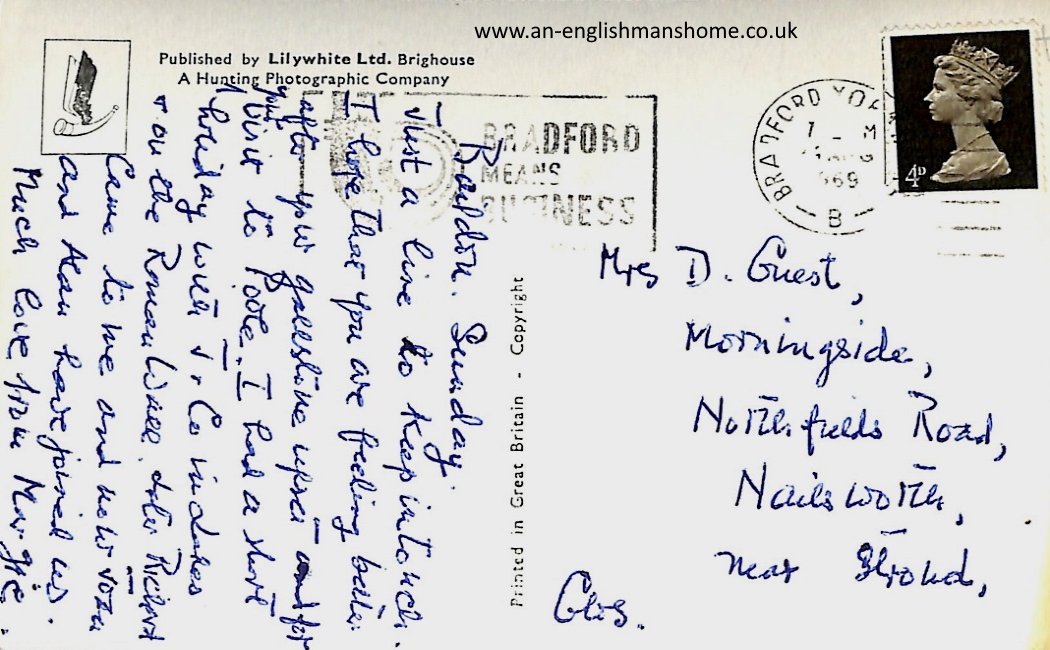 www.an-englishmanshome.co.uk
Published by Lilywhite Ltd. Brighouse
A Hunting Photographic Company
BRADFORD
MEANS
BUSINESS
BRADFORD YO
1 - M
AUG
969
B
4D
Baildon. Sunday.
Just a line to keep in touch.
I hope that you are feeling better
after your gallstone upset and for
your visit to Poole. I had a short
holiday with J. + Co in Lakes
+ on the Roman Wall. Richard
Came to me and now
and Alan have joined us.
Much love from Margie.
Printed in Great Britain - Copyright
Mrs D. Guest,
Morningside,
Northfields Road,
Nailsworth,
near Stroud,
Glos.